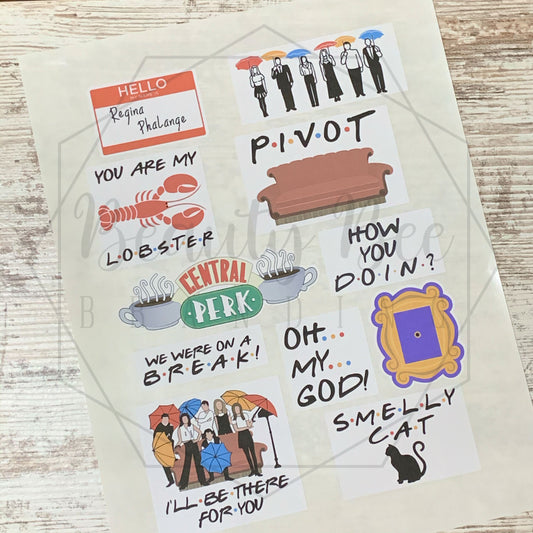 HELLO
MY NAME IS
Regina
Phalange
YOU ARE MY
L·O·B·S·T·E·R
P·I·V·O·T
HOW
YOU
D·O·I·N·?
CENTRAL
PERK
WE WERE ON A
B·R·E·A·K·!
OH....
MY....
GOD!
S·M·E·L·L·Y
C·A·T
I'LL BE THERE
FOR YOU
Beauty Bee